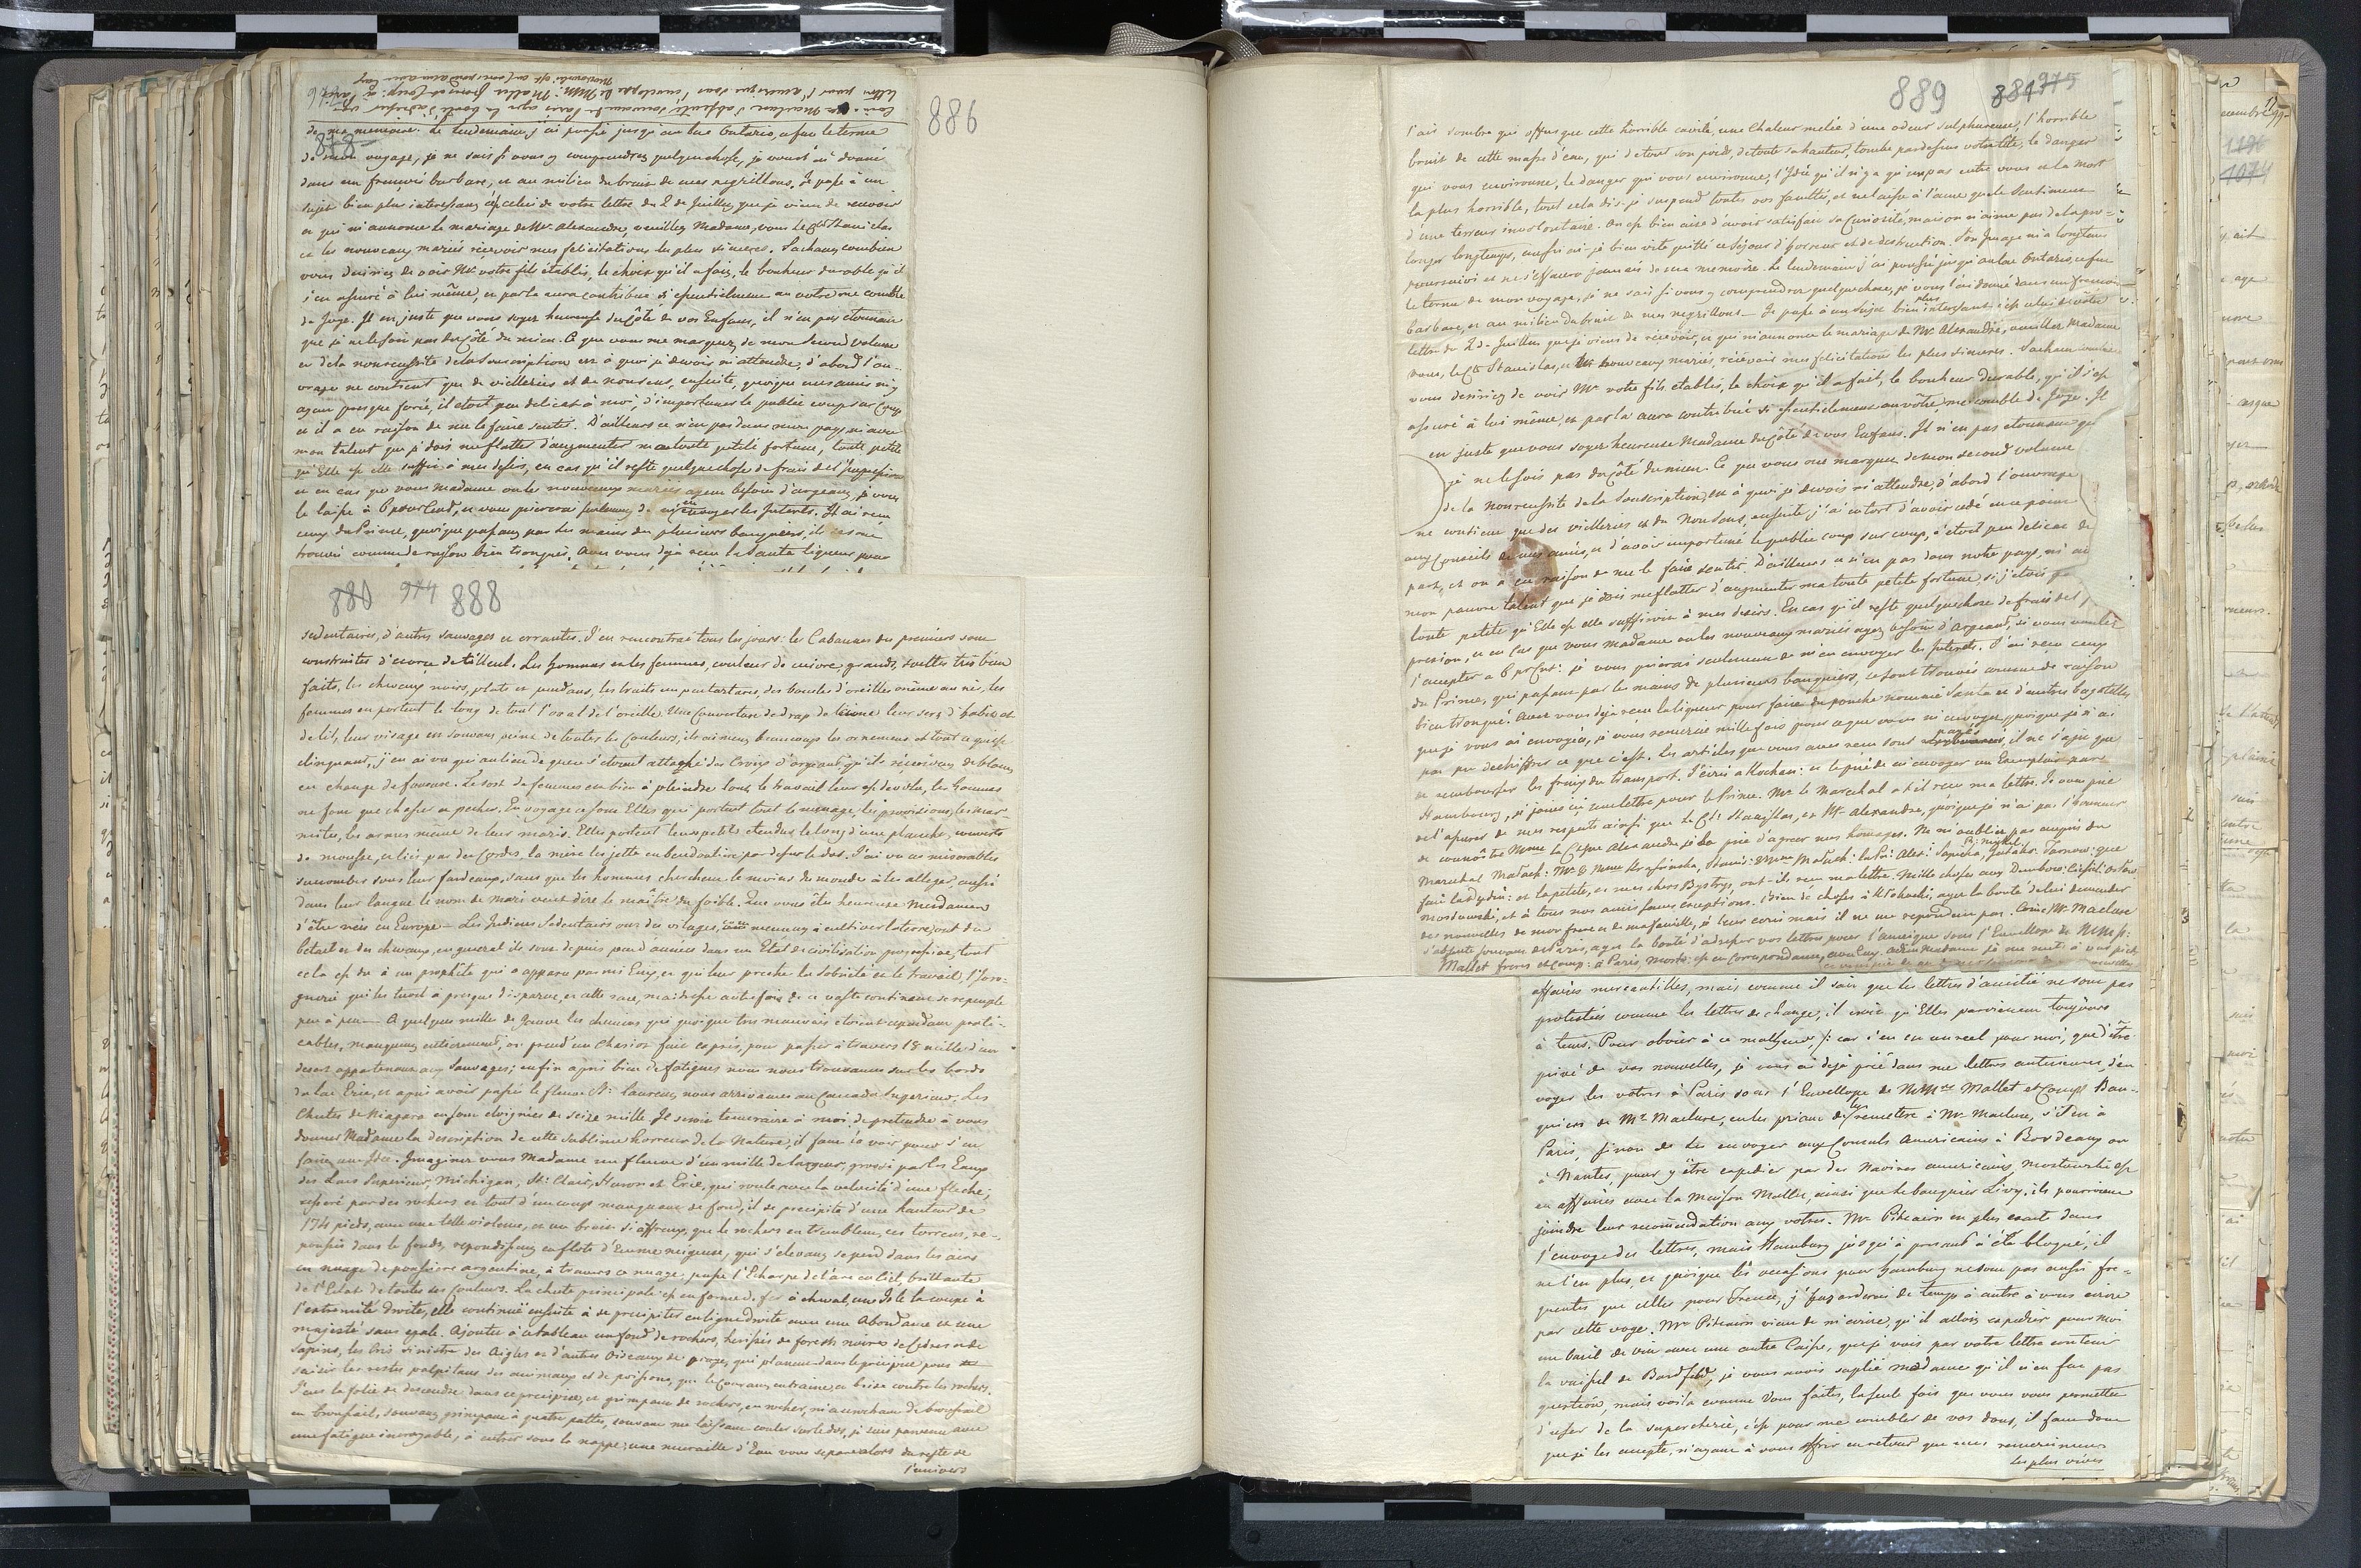 886
878
de ma memoire. Le lendemain j'ai poussé jusqu'au lac Ontario, ce fut le terme
de mon voyage, je ne sais si vous y comprendrez quelque chose, je vous l'ai donné
dans un francois barbare, et au milieu du bruit de mes negrillons. Je passe à un
sujet bien plus interessant c'est celui de votre lettre du 2 de Juillet, que je viens de recevoir
et qui m'annonce le mariage de Mr. Alexandre, veuillez Madame, vous le Cte Stanislas
et les nouveaux mariés reçevoir mes felicitations les plus sinceres. Sachant combien
vous desiriez de voir Mr. votre fils établis, le choix qu'il a fait, le bonheur durable qu'il
s'en assuré à lui même, et par la aura contribué si essentielement au votre me comble
de joye. Il est juste que vous soyez heureuse du côté de vos Enfans, il n'est pas etonnant
que je ne le sois pas du côté du mien. Ce que vous me marquez de mon second volume
et de la nonreussite de la Souscription est à quoi je devois m'attendre, d'abord l'ou-
vrage ne contient que de vielleries et de nonsens, ensuite, quoique mes amis m'y
ayent presque forcé, il etoit peu delicat à moi, d'importuner le public coup sur coup
et il a eu raison de me le faire sentir. D'ailleurs ce n'est pas dans notre pays, ni avec
mon talent que je dois me flatter d'augmenter ma toute petite fortune, toute petite
qu'Elle est elle suffit à mes desirs, en cas qu'il reste quelque chose de frais de l'Impression
et en cas que vous Madame ou les nouveaux mariés ayent besoin d'argent, je vous
le laisse à 6 pour Cent, et vous prierai seulement de m'en envoyer les Interets. J'ai reçu
ceux du Prince, quoique passant par les mains de plusieurs banquiers, ils se sont
trouvés comme de raison bien tronqués. Avez vous deja reçu la Santa liqueur pour
880 974 888
sedentaires, d'autres sauvages et errantes. J'en rencontrai tous les jours: les Cabannes des premiers sont
construites d'écorce de tilleul. Les hommes et les femmes, couleur de cuivre, grands, sveltes très bien
faits, les cheveux noirs, plats et pendans, les traits un peu tartares, des boucles d'oreilles même au né, les
femmes en portent le long de tout l'oval de l'oreille. Une Couverture de drap de laine leur sert d'habit et
de lit, leur visage est souvent peint de toutes les Couleurs, ils aiment beaucoup les ornemens et tout ce qui est
clinquant, j'en ai vu qui au lieu de queue s'etoient attaché des Croix d'argent, qu'ils reçoivent de blancs
en change de fourrure. Le sort de femmes est bien à plaindre tout le travail leur est devolu, les hommes
ne font que chasser et pecher. En voyage ce sont Elles qui portent tout le menage, les provisions, les mar-
mites, les armes même de leur maris. Elles portent leurs petits etendus le long d'une planche, couverts
de mousse, et liés par des Cordes, la mère les jette en bandoulière par dessus le dos. J'ai vu ces miserables
succomber sous leur fardeaux, sans que les hommes cherchent le moins du monde à les alleger, aussi
dans leur langue le nom de mari veut dire le maître du foible. Que vous êtes heureuse Mesdames
d'être nées en Europe — Les Indiens Sedentairs ont des vilages, commencent à cultiver la terre, ont du
bétail et des chevaux, en general ils sont depuis peu d'années dans un Etat de civilisation progressive, tout
cela est du à un prophête qui a apparu parmi Eux, et qui leur preche la sobrieté et le travail; l'Ivro-
gnerie qui les tuoit à presque disparue, et cette race, maitresse autrefois de ce vaste continent se repeuple
peu à peu — A quelques milles de Genève les chemins qui quoique tres mauvais etoient cependant prati-
cables, manquent entierement, on prend un chariot fait exprès, pour passer à travers 18 mille d'un
desert appartenant aux Sauvages; enfin après bien de fatigues nous nous trouvames sur les bords
du lac Erie, et après avoir passé le fleuve St: laurent, nous arrivames au Canada Superieur. Les
Chutes de Niagara en sont eloignées de seize mille. Il seroit temeraire à moi, de pretendre à vous
donner Madame la description de cette Sublime horreur de la Nature, il faut la voir pour s'en
faire une Idée. Imaginez vous Madame un fleuve d'un mille de largeur, grossi par les Eaux
des Lacs Superieur, Michigan, St: Clair, Huron et Erie, qui roule avec la velocité d'une fleche,
resseré par des rochers et tout d'un coup manquant de fond, il se precipite d'une hauteur de
174 pieds, avec une telle violence, et un bruit si affreux, que les rochers en tremblent, ces torrens, re-
poussés dans le fonds, rejaillissent en flots d'Ecume neigeuse, qui s'elevant se perd dans les airs
en nuage de poussiere argentine, à travers ce nuage, passe l'Echarpe de l'arc en Ciel, brillante
de l'Eclat de toutes ses Couleurs. La chute principale est en forme de fer à cheval, une Isle la coupe à
l'extremité droite, elle continüe ensuite à se precipiter en ligne droite avec une Abondance et une
majesté sans egale. Ajoutez à ce tableau un fond de rochers, herissés de forests noires de Cedres et de
Sapins, les Cris sinistre des Aigles et d'autres Oiseaux de proye, qui planent dans le precipice pour
saisir les restes palpitans des animaux et de poissons, que le Courant entraine et brise contre les rochers.
J'eus la folie de descendre dans ce precipice, et grimpant de rochers, en rocher, m'accrochant de brousail
en brousail, souvent grimpant à quatre pattes, souvent me laissant couler sur le dos, je suis parvenu avec
une fatigue incroyable, à entrer sous la nappe; une muraille d'Eau vous separe alors du reste de
l'univers
889 881 975
l'air sombre qui offusque cette horrible cavité, une Chaleur melée d'une odeur sulphureuse, l'horrible
bruit de cette masse d'eau, qui de tout son poids, de toute sa hauteur, tombe par dessus votre tête, le danger
qui vous environne, le danger qui vous environne, l'Idée qu'il n'y a qu'un pas entre vous et la mort
la plus horrible, tout cela dis-je suspend toutes vos facultés, et ne laisse à l'ame que le Sentiment
d'une terreur involontaire. On est bien aise d'avoir satisfait sa Curiosité, mais on n'aime pas de la pro-
longer longtemps, aussi ai-je bien vite quitté ce Séjour d'horreur et de destruction. Son Image m'a longtems
poursuivi et ne s'effacera jamais de ma memoire. Le lendemain j'ai poussé jusqu'au lac Ontario, ce fut
le terme de mon voyage, je ne sais si vous y comprendrez quelque chose, je vous l'ai donné dans un francois
barbare, et au milieu du bruit de mes negrillons — Je passe à un sujet bien plus interessant c'est celui de votre
lettre de 2 d. Juillet que je viens de recevoir, et qui m'annonce le mariage de Mr. Alexandre, veuillez Madame
vous, le Cte Stanislas, et les nouveaux mariés, reçevoir mes felicitations les plus sinceres. Sachant combien
vous desiriez de voir Mr. votre fils etablis, le choix qu'il a fait, le bonheur durable, qu'il s'est
assuré à lui même, et par la aura contribué si essentielement au vôtre, me comble de joye. Il
est juste que vous soyez heureuse Madame du côté de vos Enfans. Il n'est pas etonnant que
je ne le sois pas du côté du mien. Ce que vous me marquez de mon second volume
de la nonreussite de la Souscription, est à quoi je devois m'attendre, d'abord l'ouvrage
ne contient que des vielleries et du NonSens, ensuite j'ai eu tort d'avoir cedé
aux Conseils de mes amis, et d'avoir importuné le public coup sur coup, c'etoit peu delicat de
part, et on a eu raison de me le faire sentir. D'ailleurs ce n'est pas dans notre pays, ni
mon pauvre talent que je dois me flatter d'augmenter ma toute petite fortune
toute petite qu'Elle est elle suffiroit à mes desirs. En cas qu'il reste quelque chose de frais de
pression, et en Cas que vous Madame ou les nouveaux mariés ayez besoin d'argent, si vous voulez
l'accepter a 6 pr Cnt: je vous prierai seulement de m'en envoyer les Interets. J'ai reçu ceux
du Prince, qui passant par les mains de plusieurs banquiers, se sont trouvés comme de raison
bien tronqué. Avez vous deja reçu la liqueur pour faire du ponche nommée Santa et d'autres bagatelles
que je vous ai envoyées, je vous remercie mille fois pour ce que vous m'envoyez, quoique je n'ai
pas pu dechiffrer ce que c'est. Les articles que vous avez reçu sont payés, il ne s'agit que
de rembourser les fraix du transport. J'écris a Kochan: et le prie de m'envoyer un Exemplaire par
Hambourg, je joins ici une lettre pour le Prince. Mr. le Marechal at'il reçu ma lettre. Je vous prie
de l'assurer de mes respects ainsi que le Cte Stanislas, et Mr. Alexandre, quoique je n'ai pas l'honneur
de connoître Mme la Ctesse Alexandre je la prie d'agréer mes homages. Ne m'oubliez pas auprès du
mostowski, et à tous nos amis sans exceptions. Bien de choses à Klokocki, ayez la bonté de lui demander
des nouvelles de mon frere et de ma famille, je leur ecris mais il ne me repondent pas. Come Mr. Maclure
s'absente souvent de Paris, ayez la bonté d'adresser vos lettres pour l'amerique sous l'Enveloppe de MMss:
Mallet freres et Comp: à Paris, Mosto: est en Correspondance avec Eux. adieu Madame je me mets à vos pieds
affaires mercantilles, mais comme il sait que les lettres d'amitié ne sont pas
protestées comme les lettres de change, il croit qu'Elles parviennent toujours
à tems. Pour obvier à ce malheur, /: car s'en est un reel pour moi, que d'être
privé de vos nouvelles, je vous ai deja prié dans me lettres anterieures, d'en
voyer les votres à Paris sous l'Envellope de MMrs Mallet et Comp: Ban-
quiers de Mr. Maclure, en les priant de les remettre à Mr. Maclure, s'il est à
Paris, sinon de les envoyer aux Consuls Americains à Bordeaux ou
à Nantes, pour y être expedier par des Navires americains, mostowski est
en affaires avec la maison Mallet, ainsi que le banquier Livy, ils pourroient
joindre leur recomendation aux votres. Mr. Pitcairn est plus exact dans
l'envoye des lettres, mais Hamburg jusqu'à present à été bloqué, il
ne l'est plus, et quoique les occasions pour Hamburg ne sont pas aussi fre-
quentes que celles pour France, j'hazarderai de temps à autre à vous ecrire
par cette voye. Mr. Pitcairn vient de m'ecrire, qu'il alloit expedier pour moi
un baril de vin avec une autre Caisse, que je vois par votre lettre contenir
la vaissel de Bardfeld, je vous avois suplié Madame qu'il n'en fut pas
question, mais voila comme Vous faites, la seule fois que vous vous permettez
d'user de la supercherie, c'est pour me combler de vos dons, il faut donc
que je les accepte, n'ayant à vous offrir en retour que mes remercimens
les plus vives